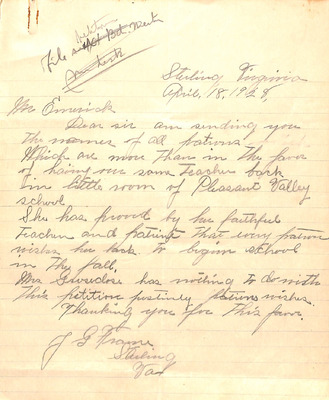 File
petition
Bd. Meet
Sterling Virginia
April, 18, 1928,
Mr Emerick
Dear sir am sending you
the names of all patrons.
Which are more than in the favor
of having our same teacher back
in little room of Pleasant Valley
school.
She has proved by her faithful
Teacher and patient that every patron
wishes her back to begin school
in the fall.
Mrs has nothing to do with
this petition patrons wishes.
Thanking you for this favor.
J G Frame
Sterling
Va